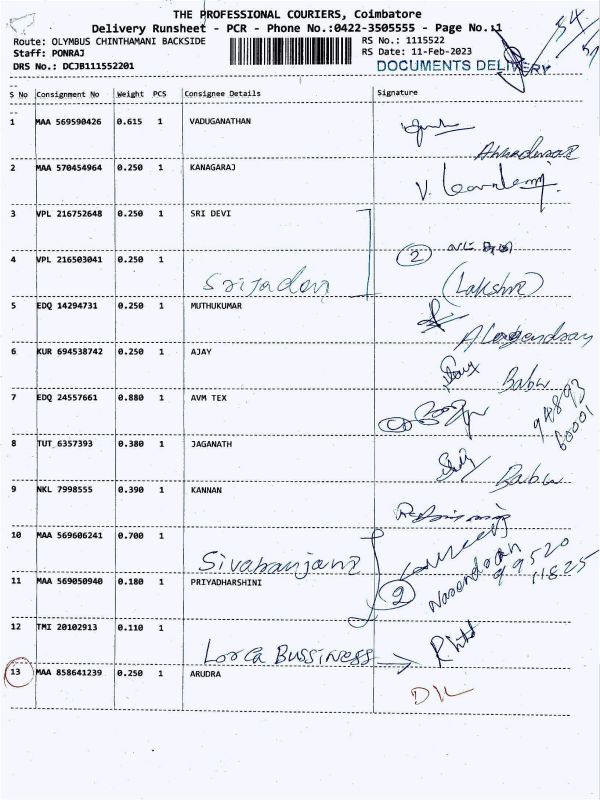 THE PROFESSIONAL COURIERS, Coimbatore
Delivery Runsheet - PCR - Phone No.:0422-3505555 - Page No.:1
Route: OLYMBUS CHINTHAMANI BACKSIDE
RS No.: 1115522
Staff: PONRAJ
RS Date: 11-Feb-2023
DRS No.: DCJB111552201
DOCUMENTS DELIVERY
S No Consignment No Weight PCS Consignee Details Signature
1 MAA 569590426 0.615 1 VADUGANATHAN
2 MAA 570454964 0.250 1 KANAGARAJ
3 VPL 216752648 0.250 1 SRI DEVI
4 VPL 216503041 0.250 1
2
(Lakshmi)
5 EDQ 14294731 0.250 1 MUTHUKUMAR
6 KUR 694538742 0.250 1 AJAY
Babu
7 EDQ 24557661 0.880 1 AVM TEX
94893
60001
8 TUT 6357393 0.380 1 JAGANATH
Babu
9 NKL 7998555 0.390 1 KANNAN
10 MAA 569606241 0.700 1
Sivaranjani
99520
11825
11 MAA 569050940 0.180 1 PRIYADHARSHINI
2
12 TMI 20102913 0.110 1
Lorca Bussiness
13 MAA 858641239 0.250 1 ARUDRA